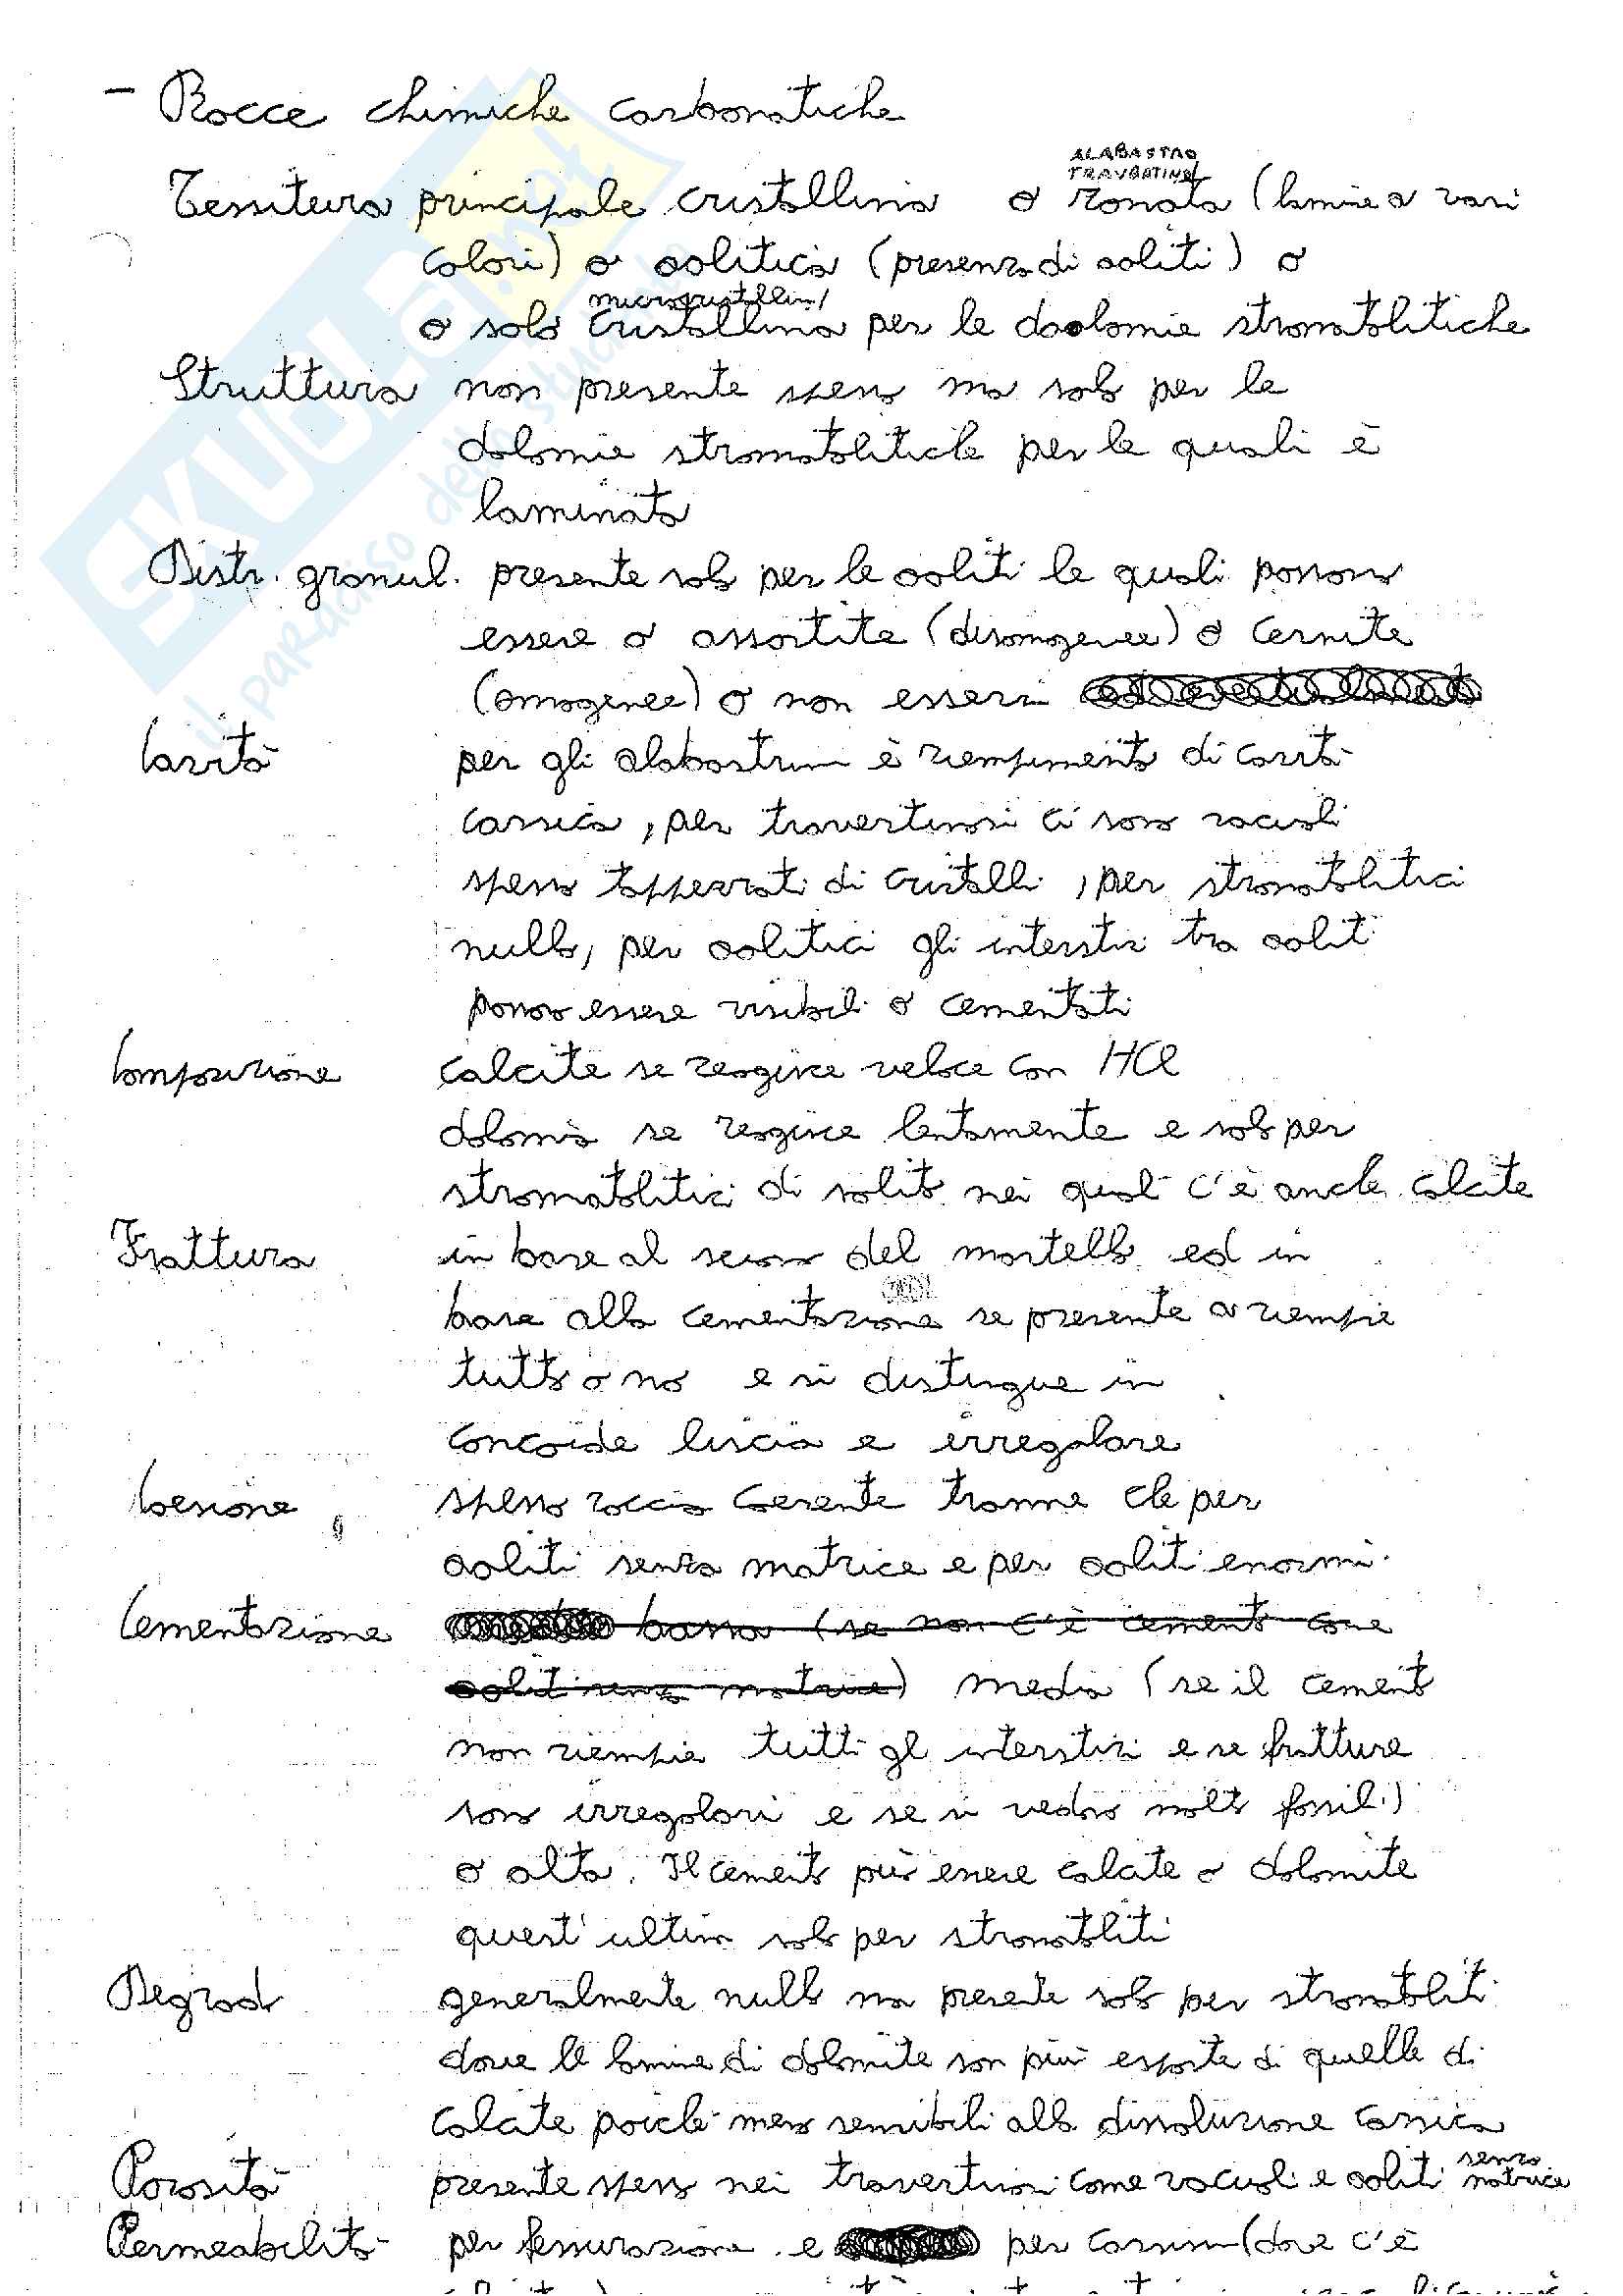 - Rocce chimiche carbonatiche
ALABASTRO
TRAVERTINO
Tessitura principale cristallina o zonata (lamine a vari
colori) o oolitica (presenza di ooliti) o
microcristallina
o solo cristallina per le doolomie stromatolitiche
Struttura non presente spesso ma solo per le
dolomie stromatolitiche per le quali è
laminata
Distr. granul. presente solo per le ooliti le quali possono
essere o assortite (disomogenee) o cernite
(omogenee) o non esserci
Cavità per gli alabastrini è riempimento di cavità
carsica, per travertinosi ci sono vacuoli
spesso tappezzati di cristalli, per stromatolitici
nullo, per oolitici gli interstizi tra ooliti
possono essere visibili o cementati
Composizione calcite se reagisce veloce con HCl
dolomia se reagisce lentamente e solo per
stromatolitici di solito nei quali c'è anche calcite
Frattura in base al suono del martello ed in
base alla cementazione se presente a riempie
tutto o no e si distingue in
concoide liscia e irregolare
Coesione spesso roccia coerente tranne che per
ooliti senza matrice e per ooliti enormi.
Cementazione bassa (se non c'è cemento come
ooliti senza matrice) media (se il cemento
non riempie tutti gl interstizi e se fratture
sono irregolari e se si vedono molto fossili)
o alta. Il cemento può essere calcite o dolomite
quest'ultimo solo per stromatoliti
Degrad generalmente nullo ma presente solo per stromatoliti
dove le lamine di dolomite son più esposte di quelle di
calcite poichè meno sensibili alla dissoluzione carsica
Porosità presente spesso nei travertinosi come vacuoli e ooliti senza
matrice
Permeabilità per fessurazione e per carsismo (dove c'è
SKUOLA.net
il paradiso dello studente